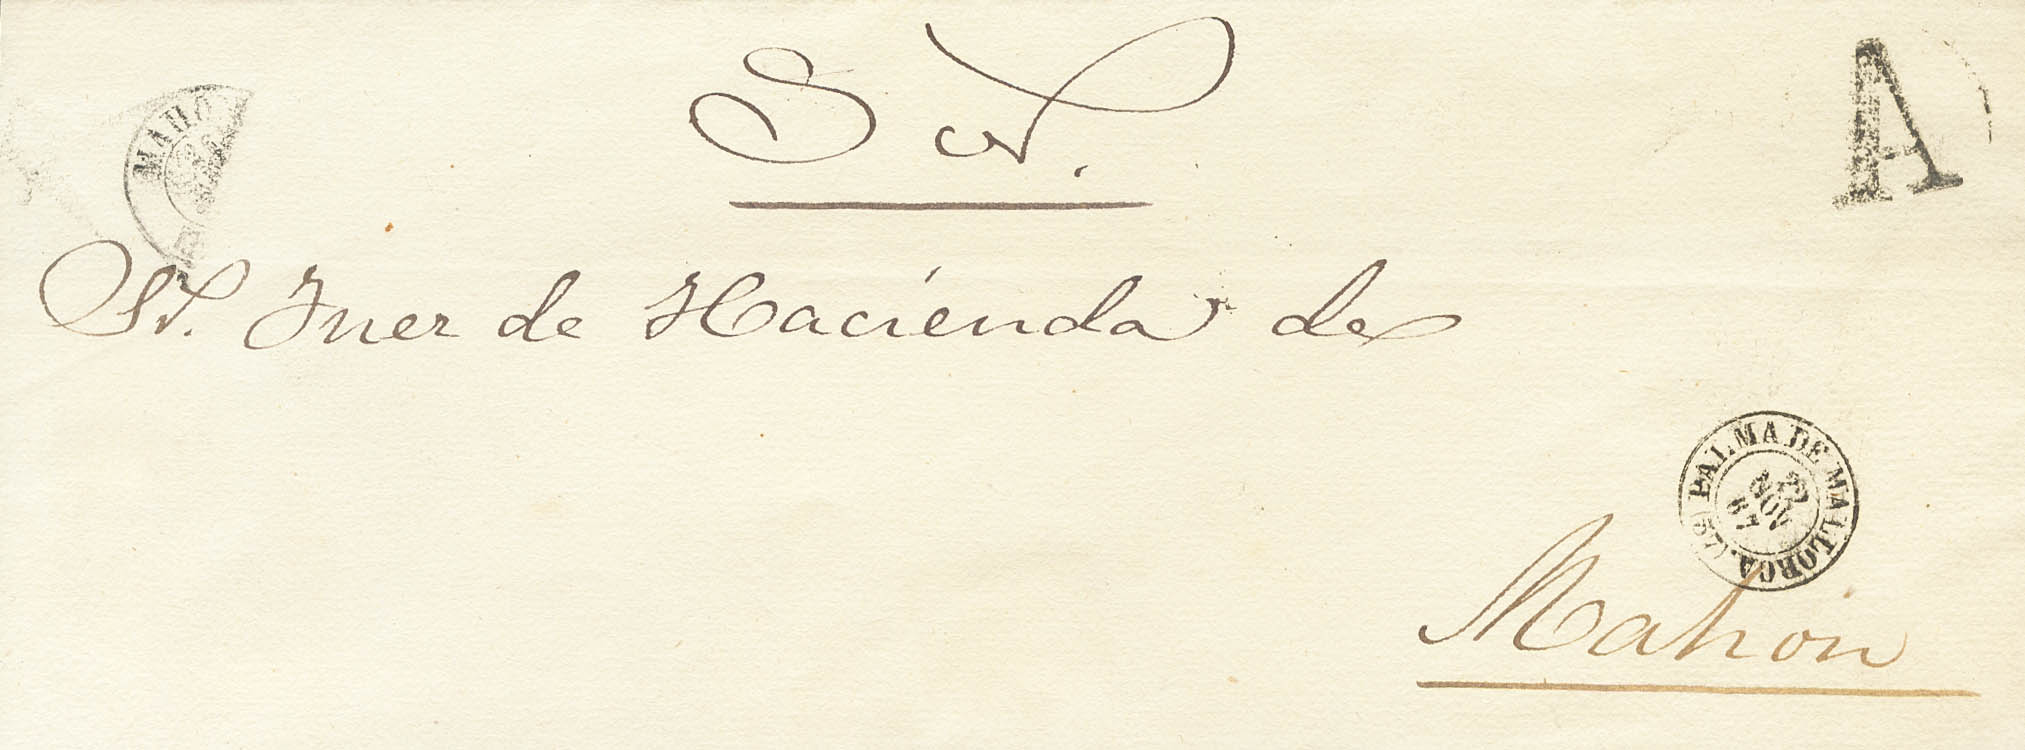 S N.
A
MAHO
Sr. Juez de Hacienda de
PALMA DE MALLORCA. (32)
NOV
67
Mahon